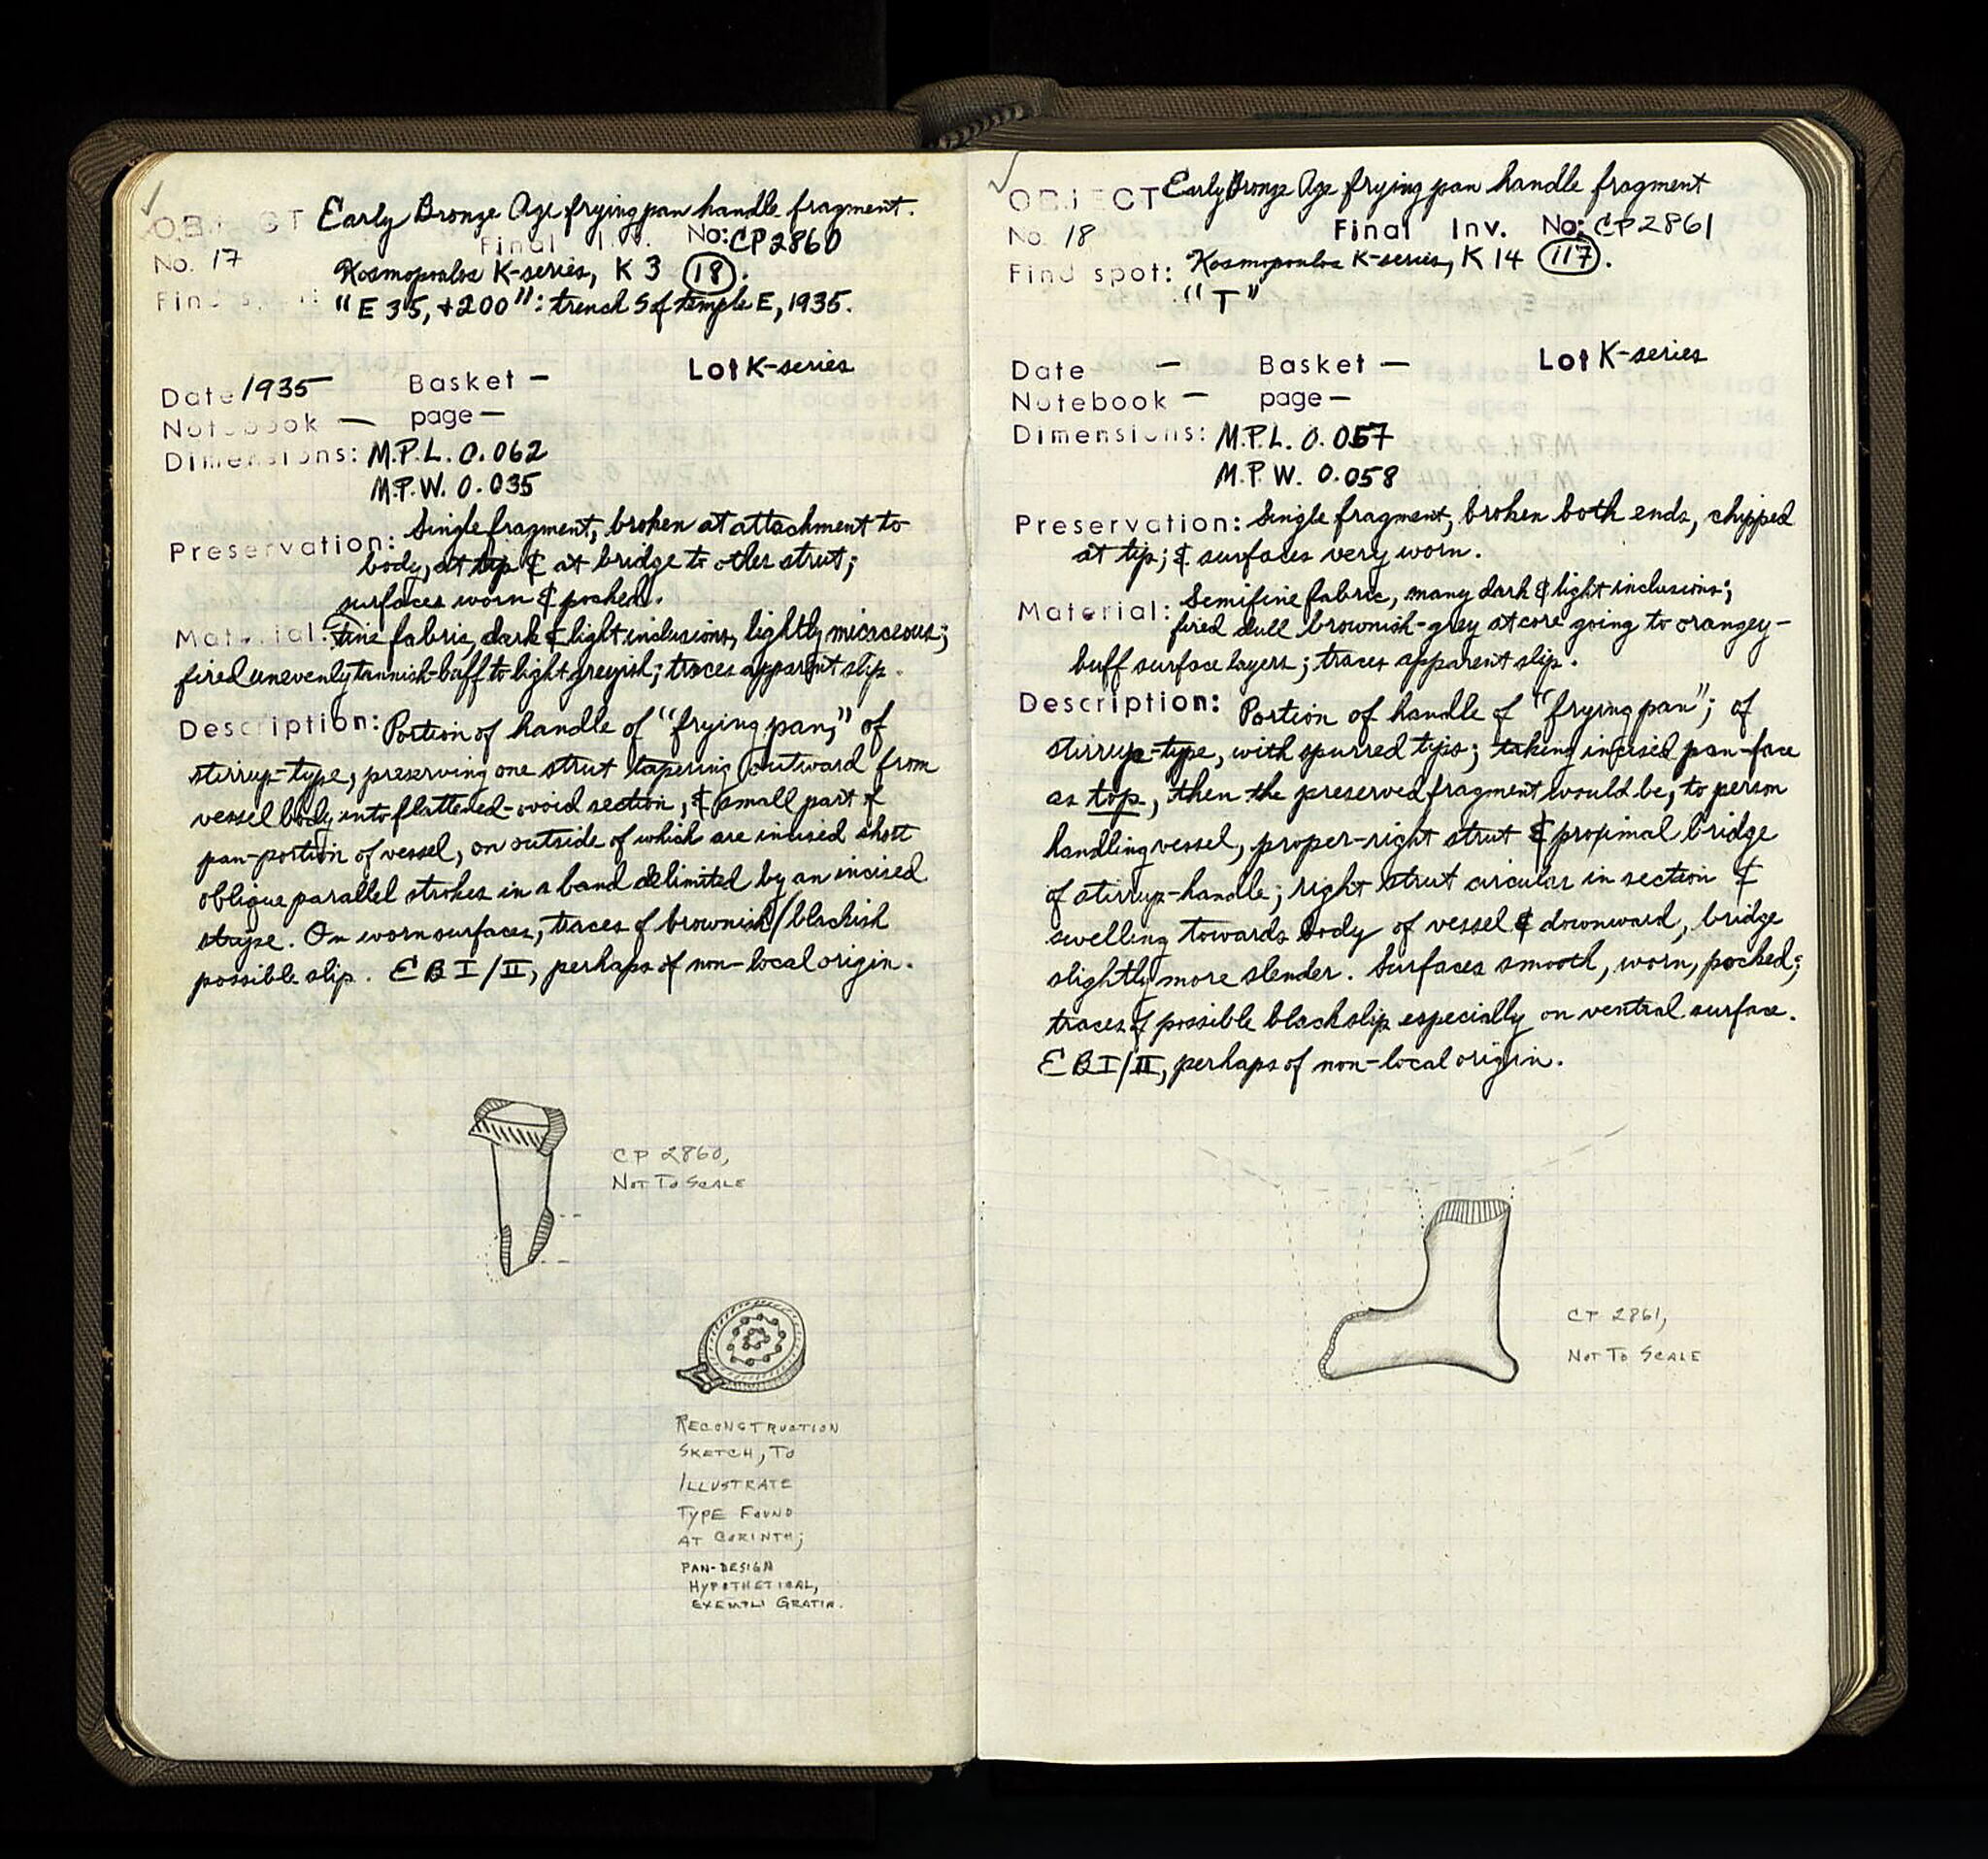 OBJECT Early Bronze Age frying pan handle fragment.
Final Inv. No: CP2860
No. 17
Kosmopoulos K-series, K 3 (18).
Find spot: "E 35, +200": trench S of temple E, 1935.
Lot K-series
Date 1935 Basket –
Notebook — page –
Dimensions: M.P.L. 0.062
M.P.W. 0.035
Preservation: Single fragment, broken at attachment to
body, at tip & at bridge to other strut;
surfaces worn & pocked.
Material: Fine fabric, dark & light inclusions, lightly micaceous;
fired unevenly tannish-buff to light greyish; traces apparent slip.
Description: Portion of handle of "frying pan," of
stirrup-type, preserving one strut tapering outward from
vessel body into flattened-ovoid section, & small part of
pan-portion of vessel, on outside of which are incised short
oblique parallel strokes in a band delimited by an incised
stripe. On worn surfaces, traces of brownish/blackish
possible slip. EB I/II, perhaps of non-local origin.
CP 2860,
NOT TO SCALE
RECONSTRUCTION
SKETCH, TO
ILLUSTRATE
TYPE FOUND
AT CORINTH;
PAN-DESIGN
HYPOTHETICAL,
EXEMPLI GRATIA.
OBJECT Early Bronze Age frying pan handle fragment
No. 18 Final Inv. No: CP2861
Find spot: Kosmopoulos K-series, K 14 (117).
"T"
Lot K-series
Date – Basket –
Notebook – page –
Dimensions: M.P.L. 0.057
M.P.W. 0.058
Preservation: Single fragment, broken both ends, chipped
at tip; & surfaces very worn.
Material: Semifine fabric, many dark & light inclusions;
fired dull brownish-grey at core going to orangey-
buff surface layers; traces apparent slip.
Description: Portion of handle of "frying pan"; of
stirrup-type, with spurred tips; taking incised pan-face
as top, then the preserved fragment would be, to person
handling vessel, proper-right strut & proximal bridge
of stirrup-handle; right strut circular in section &
swelling towards body of vessel & downward, bridge
slightly more slender. Surfaces smooth, worn, pocked;
traces of possible black slip especially on ventral surface.
EB I/II, perhaps of non-local origin.
CP 2861,
NOT TO SCALE